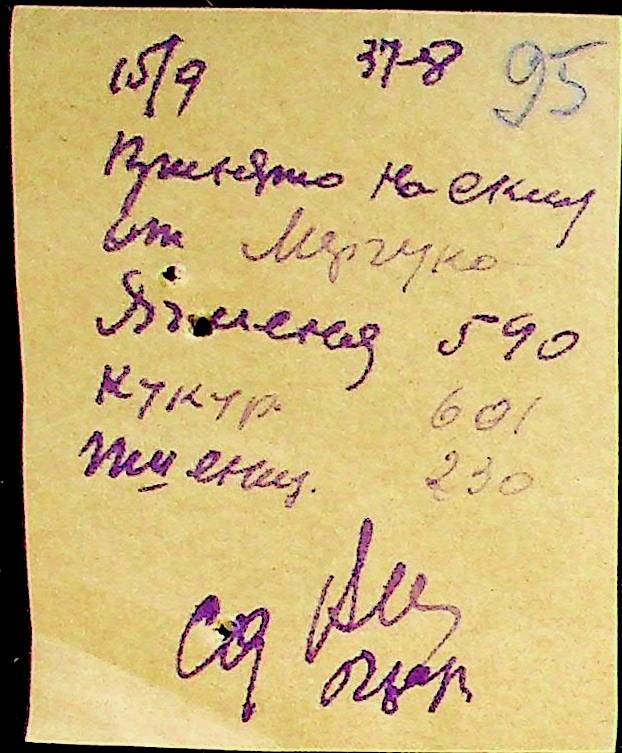 15/9 37-8 95
Принято на склад
от Марчуко
Ячменя 590
Кукур. 601
Пшениц. 230
Сд